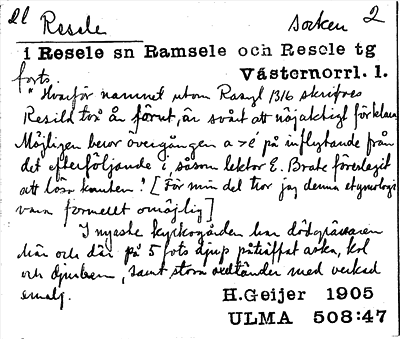 Resele socken 2
i Resele sn Ramsele och Resele tg
forts. Västernorrl. l.
"Hvarför namnet utom Rasyl 1316 skrifves
Resild två år förut, är svårt att nöjaktigt förklara.
Möjligen beror övergången a→é på inflytande från
det efterföljande i, såsom lektor E. Brate föreslagit
att lösa knuten." [För min del tror jag denna etymologi
vara formellt omöjlig]
I nyaste kyrkogården har dödgrävaren
här och där på 5 fots djup påträffat aska, kol
och djurben, samt stora oxtänder med verkad
emalj. H.Geijer 1905
ULMA 508:47